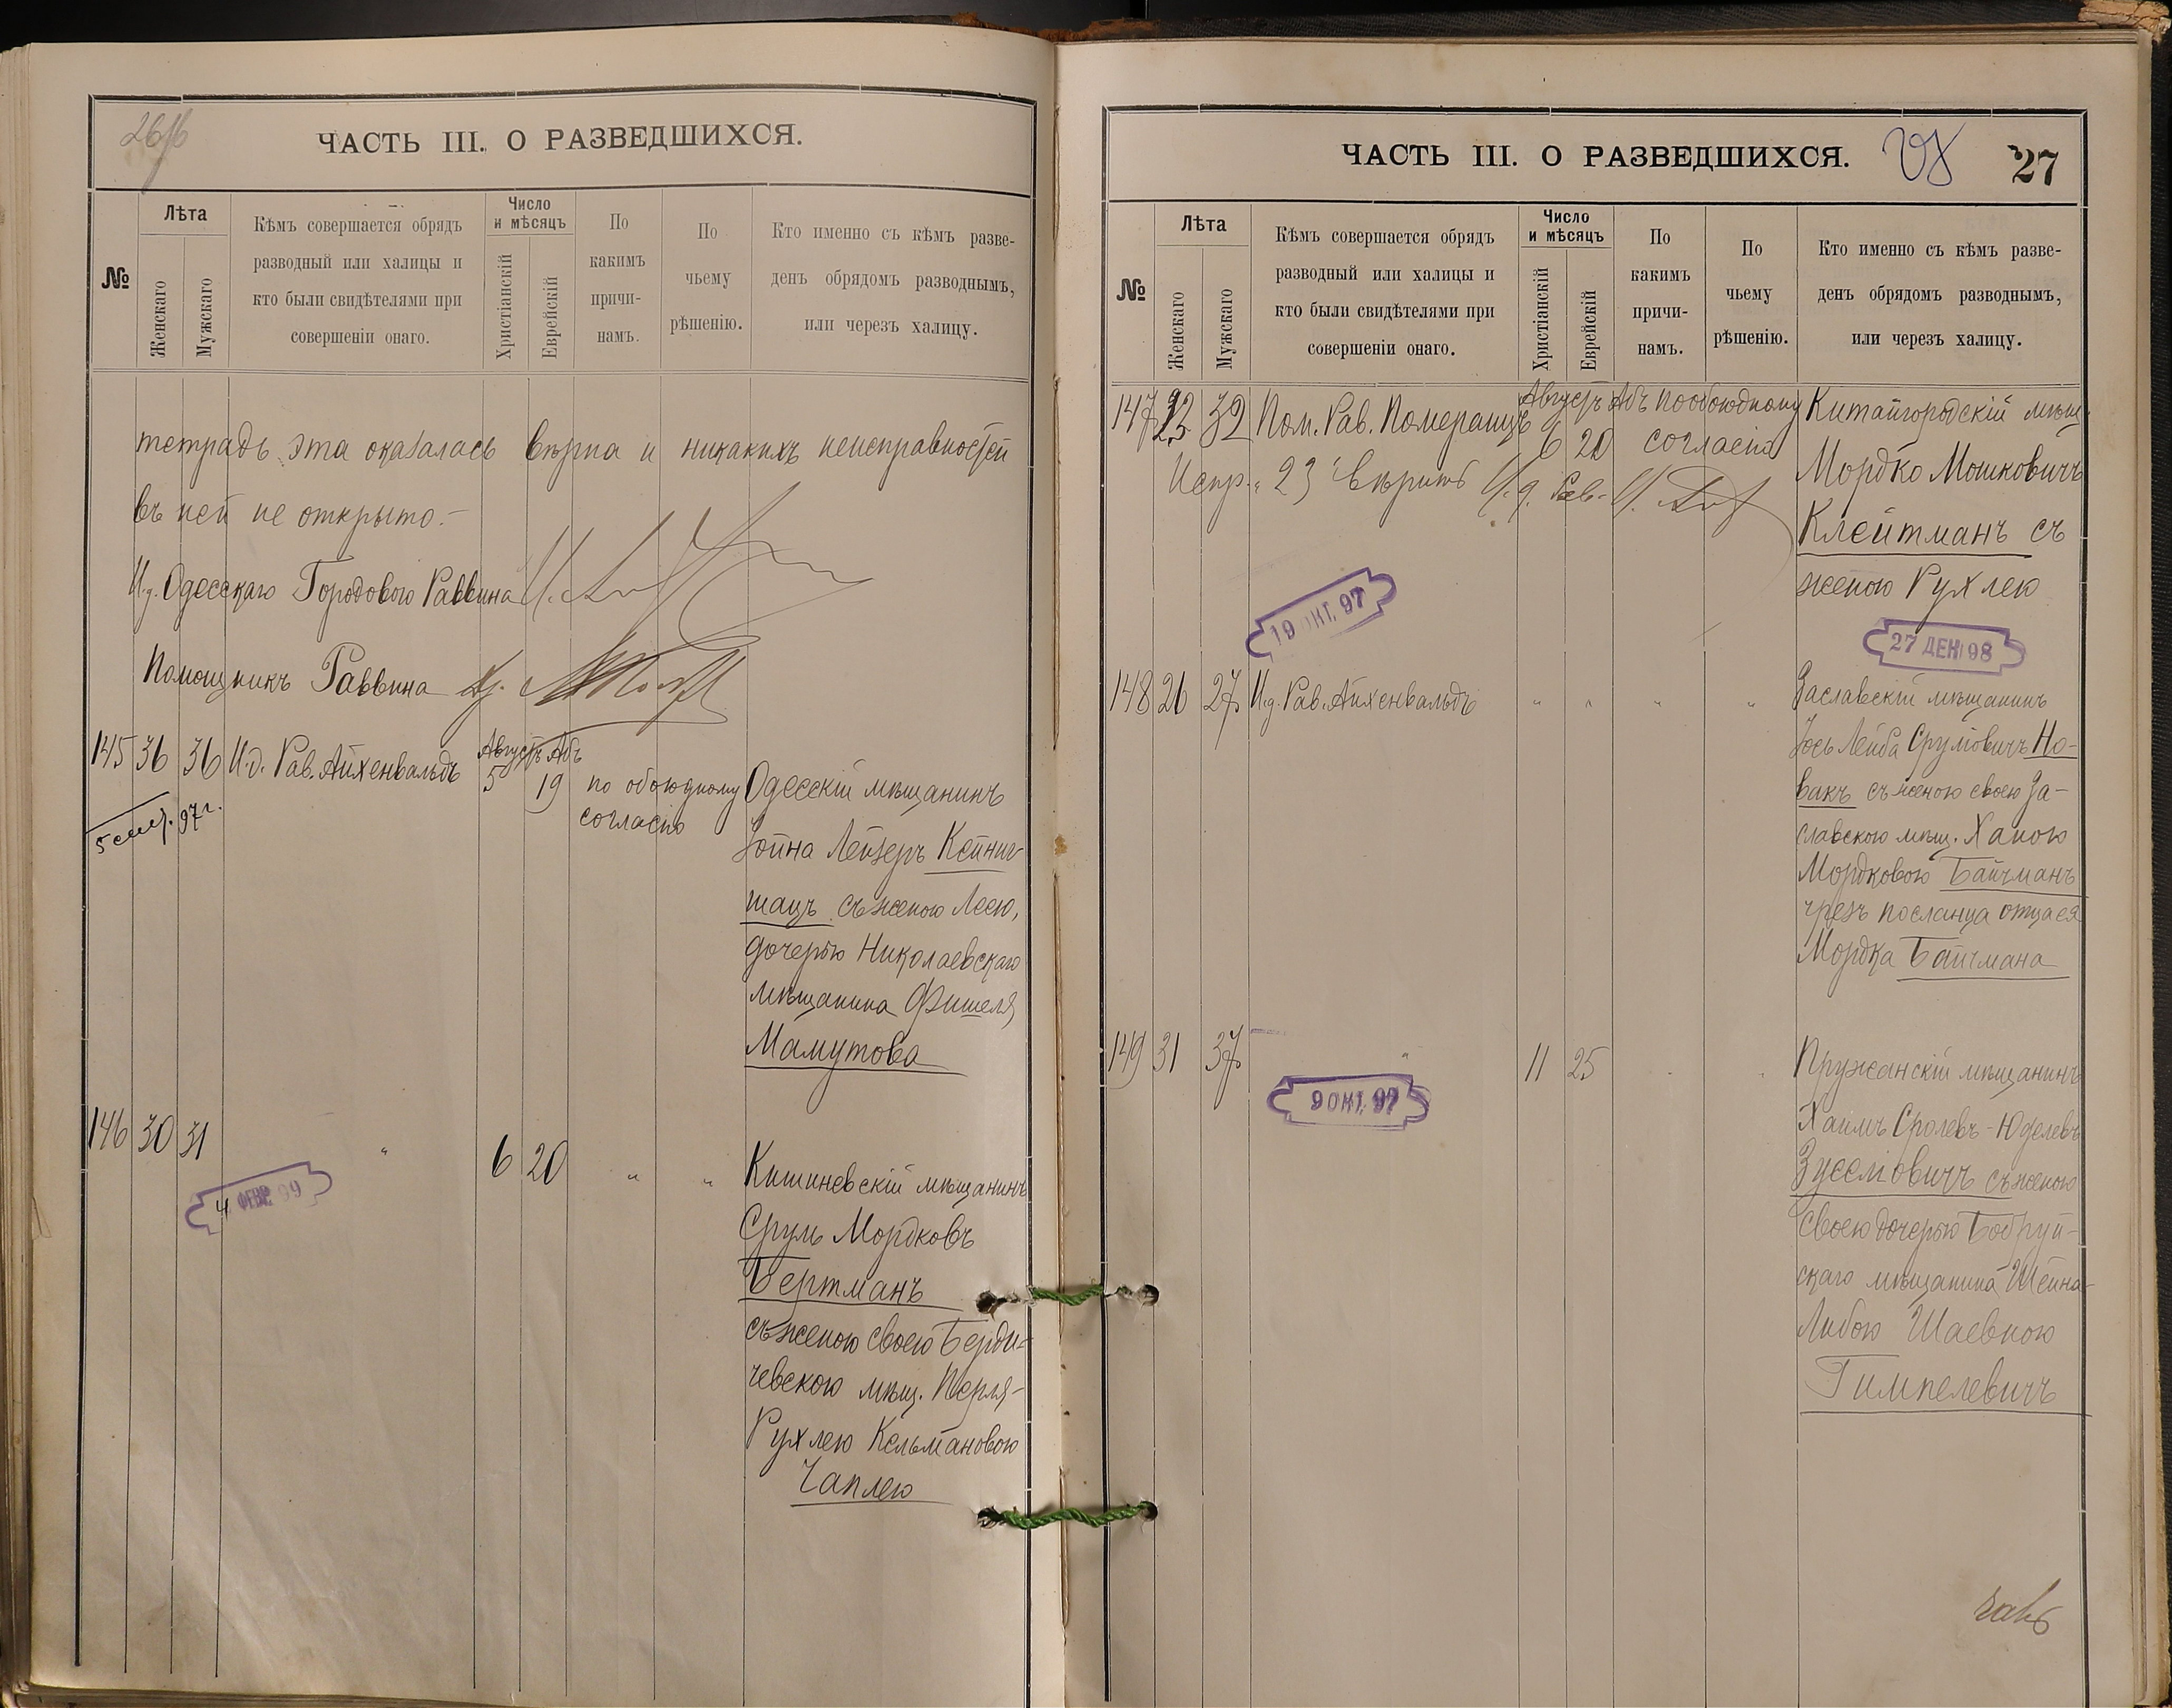 ЧАСТЬ III. О РАЗВЕДШИХСЯ.
№
Лѣта
Женскаго
Мужскаго
Кѣмъ совершается обрядъ
разводный или халицы и
кто были свидѣтелями при
совершеніи онаго.
Число
и мѣсяцъ
Христіанскій
Еврейскій
По
какимъ
причи-
намъ.
По
чьему
рѣшенію.
Кто именно съ кѣмъ разве-
денъ обрядомъ разводнымъ,
или черезъ халицу.
тетрадь эта оказалась вѣрна и никакихъ неисправностей
въ ней не открыто.-
И.д. Одесскаго Городового Раввина
Помощникъ Раввина
145 36 36 И.д. Рав. Айхенвальдъ
Августъ Абъ
5 19
по обоюдному
согласію
Одесскій мѣщанинъ
Іойна Лейзеръ Кейниг-
шацъ съ женою Леею,
дочерью Николаевскаго
мѣщанина Фишеля
Мамутова
5 сент. 97 г.
146 30 31 " 6 20 " "
Кишиневскій мѣщанинъ
Сруль Мордковъ
Бертманъ
съ женою своею Берди-
чевскою мѣщ. Перля-
Рухлею Кельмановою
Чаплею
4 ФЕВР. 99
ЧАСТЬ III. О РАЗВЕДШИХСЯ.
27
№
Лѣта
Женскаго
Мужскаго
Кѣмъ совершается обрядъ
разводный или халицы и
кто были свидѣтелями при
совершеніи онаго.
Число
и мѣсяцъ
Христіанскій
Еврейскій
По
какимъ
причи-
намъ.
По
чьему
рѣшенію.
Кто именно съ кѣмъ разве-
денъ обрядомъ разводнымъ,
или черезъ халицу.
147 23 32 Пом. Рав. Померанцъ
Августъ Абъ
6 20
по обоюдному
согласію
Испр. "23" вѣрить И.д. Рав.
Китайгородскій мѣщ.
Мордко Мошковичъ
Клейтманъ съ
женою Рухлею
19 ОКТ. 97
27 ДЕК 98
148 26 27 И.д. Рав. Айхенвальдъ " " " "
Заславскій мѣщанинъ
Іось Лейба Сруловичъ Но-
вакъ съ женою своею За-
славскою мѣщ. Ханою
Мордковою Байчманъ
чрезъ посланца отца ея
Мордка Байчмана
149 31 37 " 11 25
9 ОКТ. 97
Пружанскій мѣщанинъ
Хаимъ Сролевъ-Юделевъ
Зуселовичъ съ женою
своею дочерью Бобруй-
скаго мѣщанина Шейна-
Либою Шаевною
Гимпелевичъ